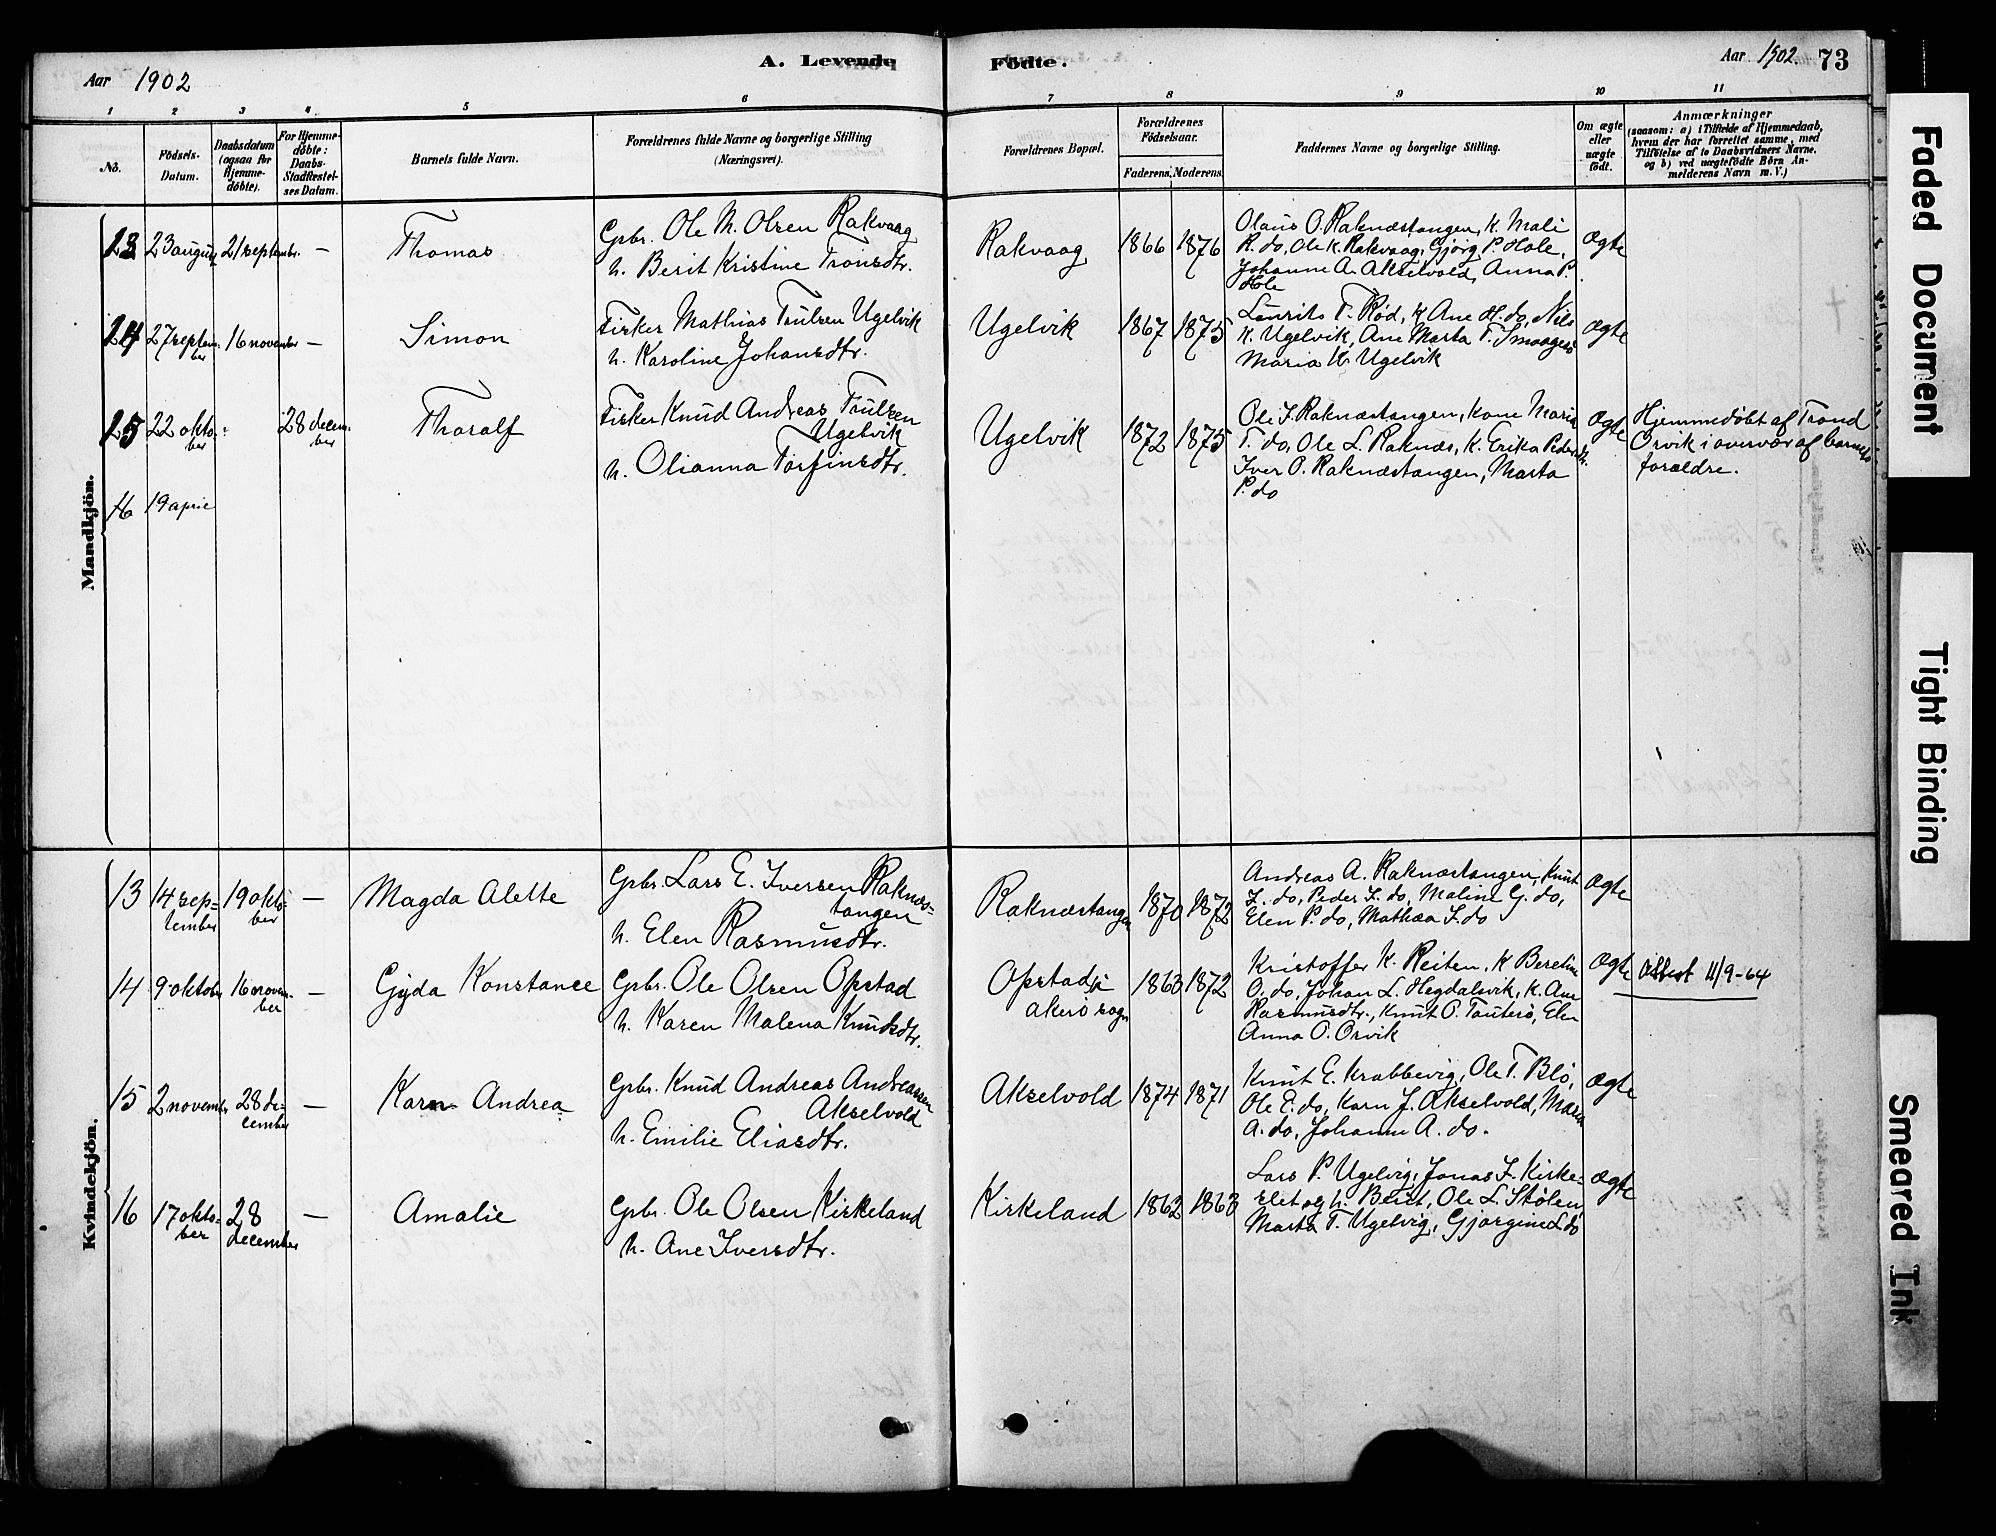 Aar 1902
A. Levende
Födte.
Aar 1902. 73
1 2 3 4 5 6 7 8 9 10 11
No.
Födsels-
Datum.
Daabsdatum
(ogsaa för
Hjemme-
döbte).
For Hjemme-
döbte:
Daabs-
Stadfæstel-
ses Datum.
Barnets fulde Navn.
Forældrenes fulde Navne og borgerlige Stilling
(Næringsvei).
Forældrenes Bopæl.
Forældrenes
Födselsaar.
Faderens. Moderens.
Faddernes Navne og borgerlige Stilling.
Om ægte
eller
uægte
födt.
Anmærkninger
(saasom: a) i Tilfælde af Hjemmedaab,
hvem der har forrettet samme, med
Tilföielse af to Daabsvidners Navne,
og b) ved uægtefödte Börn An-
melderens Navn m. V.)
Mandkjön.
23 23 august 21 septembr. — Thomas
Gbr. Ole M. Olsen Rakvaag
h. Berit Kristine Tronsdtr.
Rakvaag 1866 1876
Olaus O. Raknæstangen, K. Mali
R. do, Ole K. Rakvaag, Gjørg P. Hole,
Johanne A. Akselvold, Anna P.
Hole
Ægte
24 27 septem-
ber
16 november — Simon
Fisker Mathias Paulsen Ugelvik
h. Karoline Johansdtr.
Ugelvik 1867 1875
Laurits T. Rød, K. Ane H. do, Nils
K. Ugelvik, Ane Marta T. Smaagesø
Maria K. Ugelvik
Ægte
25 22 okto-
ber
28 decem-
ber
Thoralf
Fisker Knud Andreas Paulsen
Ugelvik
h. Olianna Torfinsdtr.
Ugelvik 1872 1875
Ole I. Raknæstangen, kone Maria
T. do, Ole L. Raknæs, K. Erika Pedersdtr.
Iver O. Raknæstangen, Marta
P. do
Ægte
Hjemmedøbt af Trond
Orvik i overvær af barnets
forældre.
16 19 april
Kvindekjön.
13 14 sep-
tember
19 okto-
ber
— Magda Alette
Gbr. Lars E. Iversen Raknæs-
tangen
h. Elen Rasmusdtr.
Raknæstangen 1870 1872
Andreas A. Raknæstangen, Knut
I. do, Peder I. do, Maline G. do,
Elen P. do, Mathea I. do
Ægte
14 9 oktober 16 novem-
ber
— Gyda Konstance
Gbr. Ole Olsen Opstad
h. Karen Malena Knudsdtr.
Opstad i
Akerø sogn
1863 1872
Kristoffer K. Reiten, K Beretine
O. do, Johan L. Hegdalsvik, K. Ane
Rasmusdtr., Knut P. Tauterø, Elen
Anna O. Orvik
Ægte Attest 11/9-64
15 2 novembr 28 de-
cember
— Karn Andrea
Gbr. Knud Andreas Andreassen
Akselvold
h. Emilie Eliasdtr.
Akselvold 1874 1871
Knut E. Krabbevig, Ole T. Blø,
Ole E. do, Karn J. Akselvold, Maria
A. do, Johanne A. do.
Ægte
16 17 okto-
ber
28
december
— Amalie
Gbr. Ole Olsen Kirkeland
h. Ane Iversdtr.
Kirkeland 1862 1863
Lars P. Ugelvig, Jonas I. Kirke-
slet og h. Berit, Ole L. Stølen,
Marta T. Ugelvig, Gjørgine L. do
Ægte
Faded Document
Tight Binding
Smeared Ink